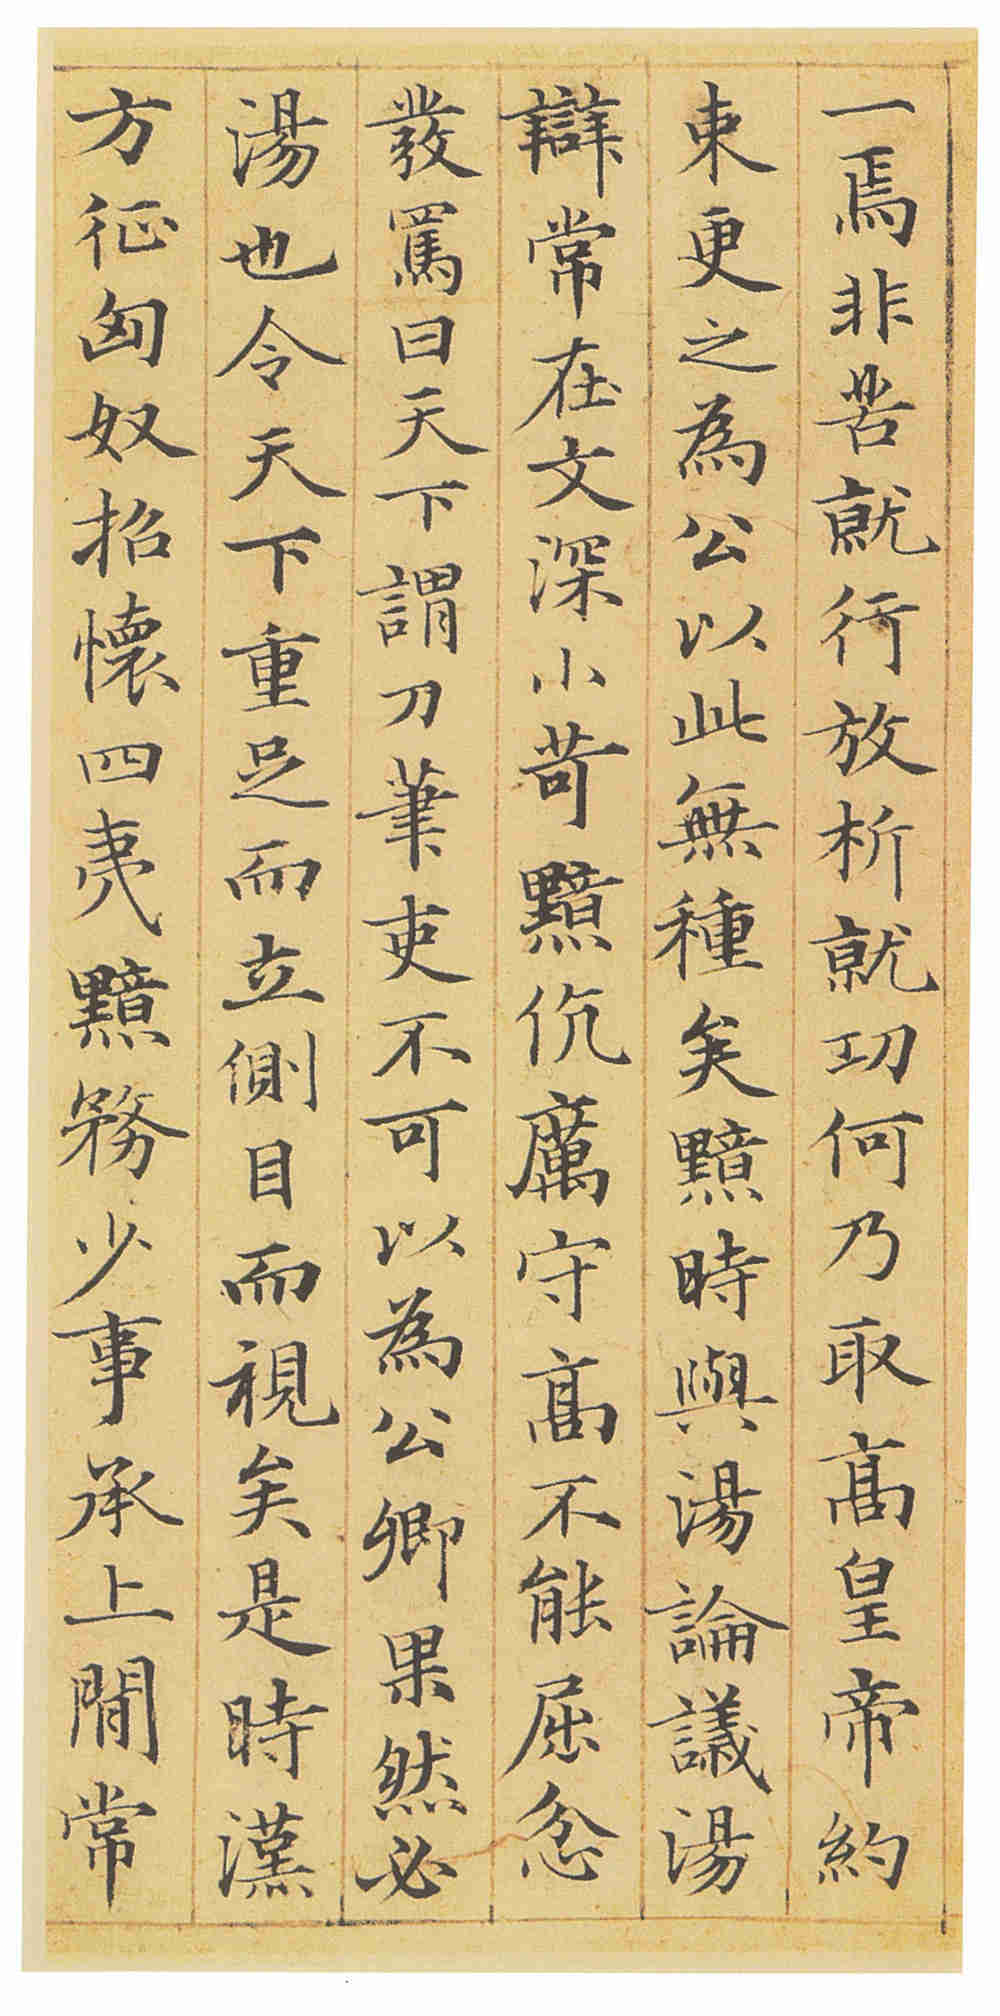 一焉非苦就行放析就功何乃取髙皇帝約
束更之為公以此無種矣黯時與湯論議湯
辯常在文深小苛黯伉厲守髙不能屈忿
發罵曰天下謂刀筆吏不可以為公卿果然必
湯也令天下重足而立側目而視矣是時漢
方征匈奴招懷四夷黯務少事承上閒常